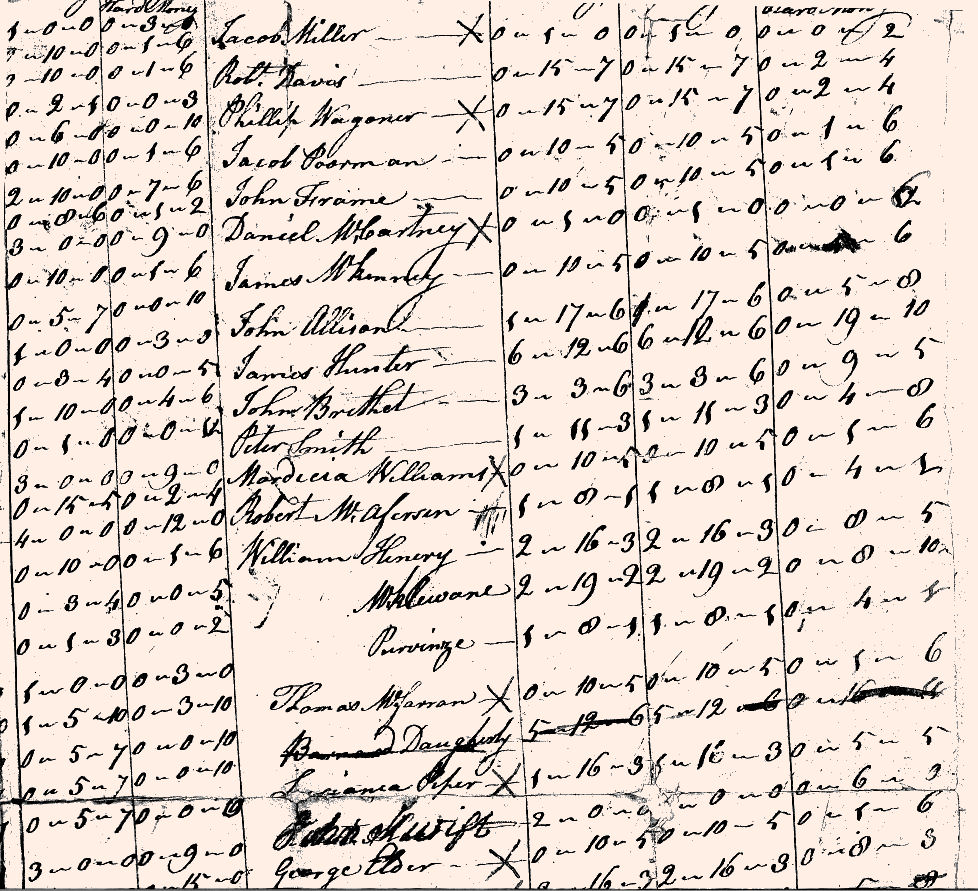 Hard Money
1 - 0 - 0 0 - 3 - 0 Jacob Miller X 0 - 1 - 0 0 - 1 - 0 0 - 0 - 2
10 - 0 0 - 1 - 6 Robt. Davis 0 - 15 - 7 0 - 15 - 7 0 - 2 - 4
- 10 - 0 0 - 1 - 6 Phillip Wagoner X 0 - 15 - 7 0 - 15 - 7 0 - 2 - 4
0 - 2 - 1 0 - 0 - 3 Jacob Poorman 0 - 10 - 5 0 - 10 - 5 0 - 1 - 6
0 - 6 - 0 0 - 0 - 10 John Frame 0 - 10 - 5 0 - 10 - 5 0 - 1 - 6
0 - 10 - 0 0 - 1 - 6 Daniel McCartney X 0 - 1 - 0 0 - 1 - 0 0 - 0 - 2
2 - 10 - 0 0 - 7 - 6 James Mckenney 0 - 10 - 5 0 - 10 - 5 0 - 6
0 - 8 - 6 0 - 1 - 2 John Allison 1 - 17 - 6 1 - 17 - 6 0 - 5 - 8
3 - 0 - 0 0 - 9 - 0 James Hunter 6 - 12 - 6 6 - 12 - 6 0 - 19 - 10
0 - 10 - 0 0 - 1 - 6 John Brithet 3 - 3 - 6 3 - 3 - 6 0 - 9 - 5
0 - 5 - 7 0 - 0 - 10 Peter Smith 1 - 11 - 3 1 - 11 - 3 0 - 4 - 8
1 - 0 - 0 0 - 3 - 0 Mordicia Williams X 0 - 10 - 5 0 - 10 - 5 0 - 1 - 6
0 - 3 - 4 0 - 0 - 5 Robert 1 - 8 - 1 1 - 8 - 1 0 - 4 - 1
1 - 10 - 0 0 - 4 - 6 William Henery 2 - 16 - 3 2 - 16 - 3 0 - 8 - 5
0 - 1 - 0 0 - 0 - Mcklewane 2 - 19 - 2 2 - 19 - 2 0 - 8 - 10
3 - 0 - 0 0 - 9 - 0 Purvinze 1 - 8 - 1 1 - 8 - 1 0 - 4 - 1
0 - 15 - 5 0 - 2 - 4 Thomas X 0 - 10 - 5 0 - 10 - 5 0 - 1 - 6
4 - 0 - 0 0 - 12 - 0 Barnard Daugherty 5 - 12 - 6 5 - 12 - 6 0 - 16
0 - 10 - 0 0 - 1 - 6 Piper X 1 - 16 - 3 1 - 16 - 3 0 - 5 - 5
0 - 3 - 4 0 - 0 - 5 John Swift 2 - 0 - 0 - 0 - 0 0 - 6 -
0 - 1 - 3 0 - 0 - 2 George Elder X 0 - 10 - 5 0 - 10 - 5 0 - 1 - 6
1 - 0 - 0 0 - 3 - 0 16 - 3 2 - 16 - 3 0 - 8 - 3
1 - 5 - 10 0 - 3 - 10
0 - 5 - 7 0 - 0 - 10
0 - 5 - 7 0 - 0 - 10
0 - 5 - 7 0 - 0 - 10
3 - 0 - 0 0 - 9 - 0
15 - 0